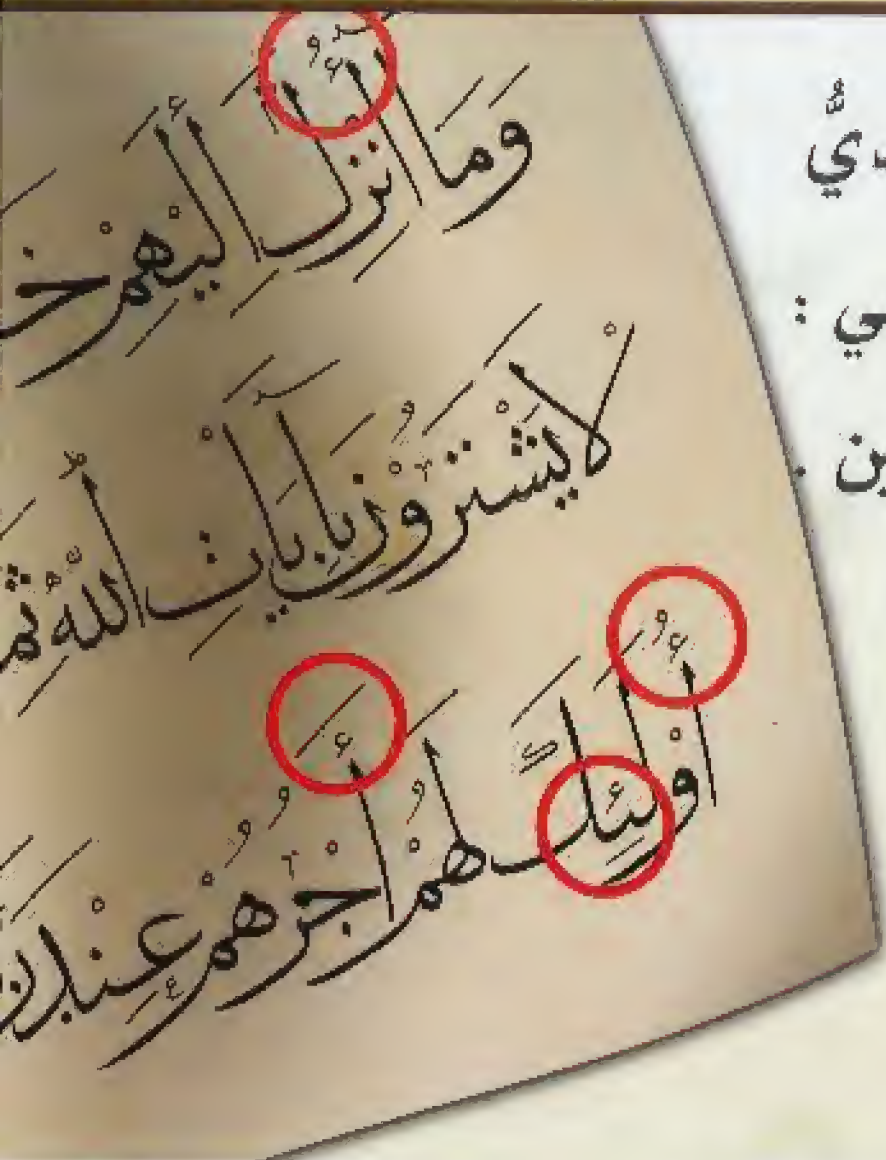 وَمَا أُنْزِلَ إِلَيْهِمْ
لَا يَشْتَرُونَ بِآيَاتِ اللَّهِ
أُولَئِكَ لَهُمْ أَجْرُهُمْ عِنْدَ